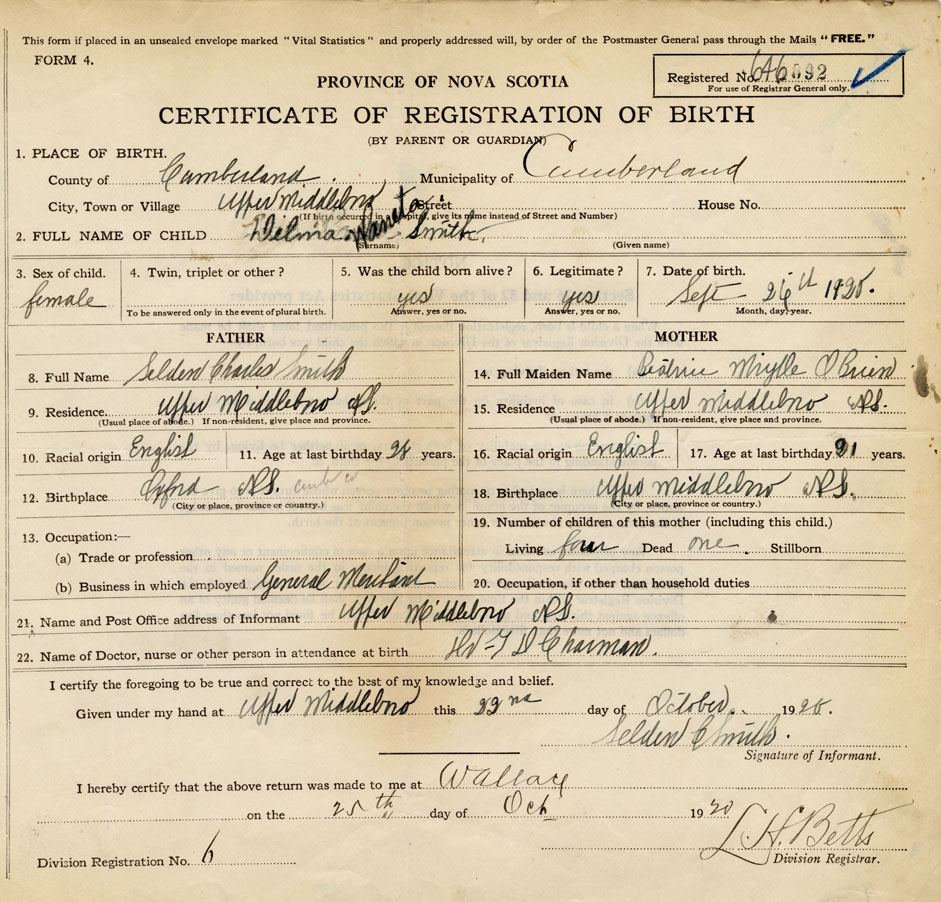 This form if placed in an unsealed envelope marked "Vital Statistics" and properly addressed will, by order of the Postmaster General pass through the Mails "FREE."
FORM 4.
Registered No. 646092
For use of Registrar General only.
PROVINCE OF NOVA SCOTIA
CERTIFICATE OF REGISTRATION OF BIRTH
(BY PARENT OR GUARDIAN)
1. PLACE OF BIRTH.
County of Cumberland Municipality of Cumberland
City, Town or Village Upper Middleboro Street House No.
(If birth occurred in a hospital, give its name instead of Street and Number)
2. FULL NAME OF CHILD Wilma Smith
(Surname) (Given name)
3. Sex of child. 4. Twin, triplet or other? 5. Was the child born alive? 6. Legitimate? 7. Date of birth.
female yes yes Sept 26th 1920.
To be answered only in the event of plural birth. Answer, yes or no. Answer, yes or no. Month, day, year.
FATHER MOTHER
8. Full Name Selden Charles Smith 14. Full Maiden Name Beatrice Myrtle O'Brien
9. Residence. Upper Middleboro N.S. 15. Residence Upper Middleboro N.S.
(Usual place of abode.) If non-resident, give place and province. (Usual place of abode.) If non-resident, give place and province.
10. Racial origin English 11. Age at last birthday 28 years. 16. Racial origin English 17. Age at last birthday years.
12. Birthplace Oxford N.S. 18. Birthplace Upper Middleboro N.S.
(City or place, province or country.) (City or place, province or country.)
13. Occupation:— 19. Number of children of this mother (including this child.)
(a) Trade or profession. Living four Dead one Stillborn
(b) Business in which employed General Merchant 20. Occupation, if other than household duties
21. Name and Post Office address of Informant Upper Middleboro N.S.
22. Name of Doctor, nurse or other person in attendance at birth
I certify the foregoing to be true and correct to the best of my knowledge and belief.
Given under my hand at Upper Middleboro this 22nd day of October 1920.
Selden C Smith.
Signature of Informant.
I hereby certify that the above return was made to me at Wallace
on the 25th day of Oct 1920
L. H. Betts
Division Registration No. 6 Division Registrar.